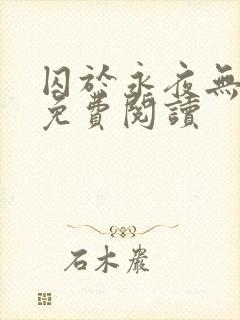 囚於永夜無
免費閱讀
石木嚴